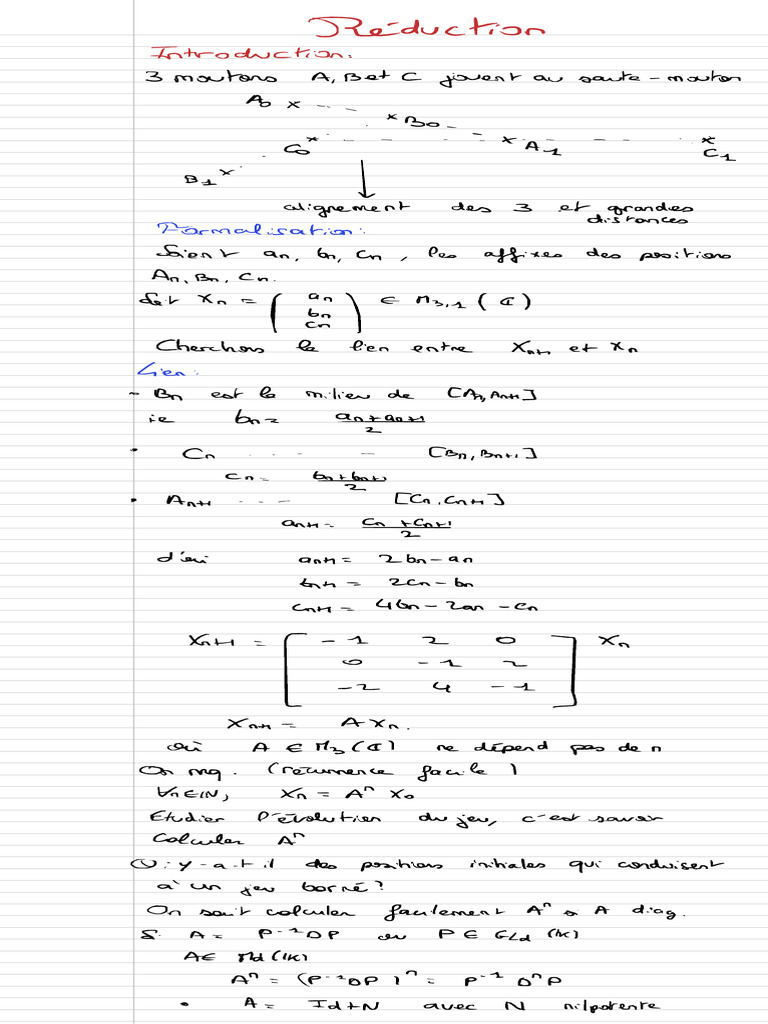 Réduction
Introduction:
3 moutons A, B et C jouent au saute-mouton
A0 x
x B0
C0 x x A1 x C1
B1 x
alignement des 3 et grandes
distances
Formalisation:
Soient an, bn, cn, les affixes des positions
An, Bn, Cn.
Soit Xn = ( an bn cn ) ∈ M3,1 (ℂ)
Cherchons le lien entre Xn+1 et Xn
Lien:
- Bn est le milieu de [An, An+1]
ie bn = (an + an+1)/2
• Cn - - - [Bn, Bn+1]
cn = (bn + bn+1)/2
• An+1 - - - [Cn, Cn+1]
an+1 = (cn + cn+1)/2
d'où an+1 = 2bn - an
bn+1 = 2cn - bn
cn+1 = 4bn - 2an - cn
Xn+1 = [ -1 2 0 ] Xn
0 -1 2
-2 4 -1
Xn+1 = A Xn.
où A ∈ M3(ℂ) ne dépend pas de n
On mq. (récurrence facile)
∀n∈ℕ, Xn = Aⁿ X0
Etudier l'évolution du jeu, c'est savoir
calculer Aⁿ
Q: y-a-t-il des positions initiales qui conduisent
à un jeu borné?
On sait calculer facilement Aⁿ si A diag.
Si A = P⁻¹DP où P ∈ GLd (K)
A∈ Md(K)
Aⁿ = (P⁻¹DP)ⁿ = P⁻¹ Dⁿ P
• A = Id+N avec N nilpotente